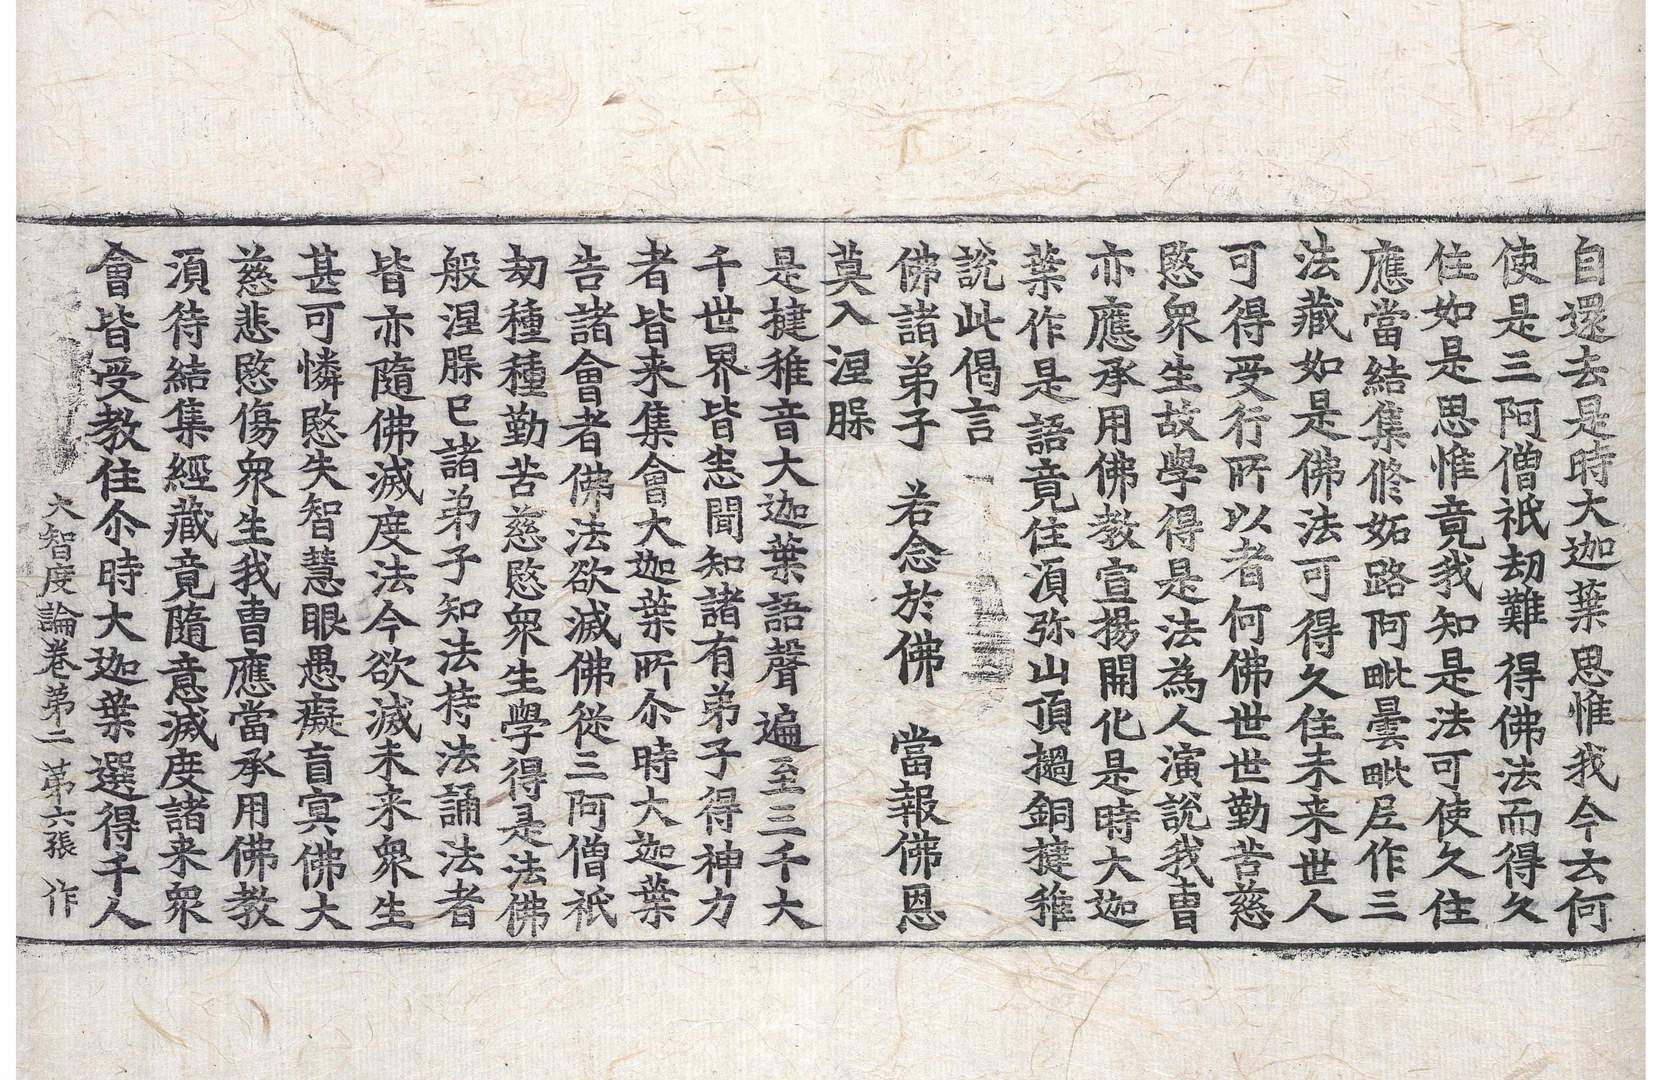 自還去是時大迦葉思惟我今云何
使是三阿僧祇劫難得佛法而得久
住如是思惟竟我知是法可使久住
應當結集修妬路阿毗曇毗尼作三
法藏如是佛法可得久住未来世人
可得受行所以者何佛世世勤苦慈
愍衆生故學得是法為人演說我曹
亦應承用佛教宣揚開化是時大迦
葉作是語竟住湏弥山頂撾銅揵稚
說此偈言
佛諸弟子 若念於佛 當報佛恩
莫入涅脲
是揵稚音大迦葉語聲遍至三千大
千世界皆悉聞知諸有弟子得神力
者皆来集會大迦葉所尒時大迦葉
告諸會者佛法欲滅佛從三阿僧祇
劫種種勤苦慈愍衆生學得是法佛
般涅脲已諸弟子知法持法誦法者
皆亦隨佛滅度法今欲滅未来衆生
甚可憐愍失智慧眼愚癡盲冥佛大
慈悲愍傷衆生我曹應當承用佛教
湏待結集經藏竟隨意滅度諸来衆
會皆受教住尒時大迦葉選得千人
大智度論卷第二 第六張 作